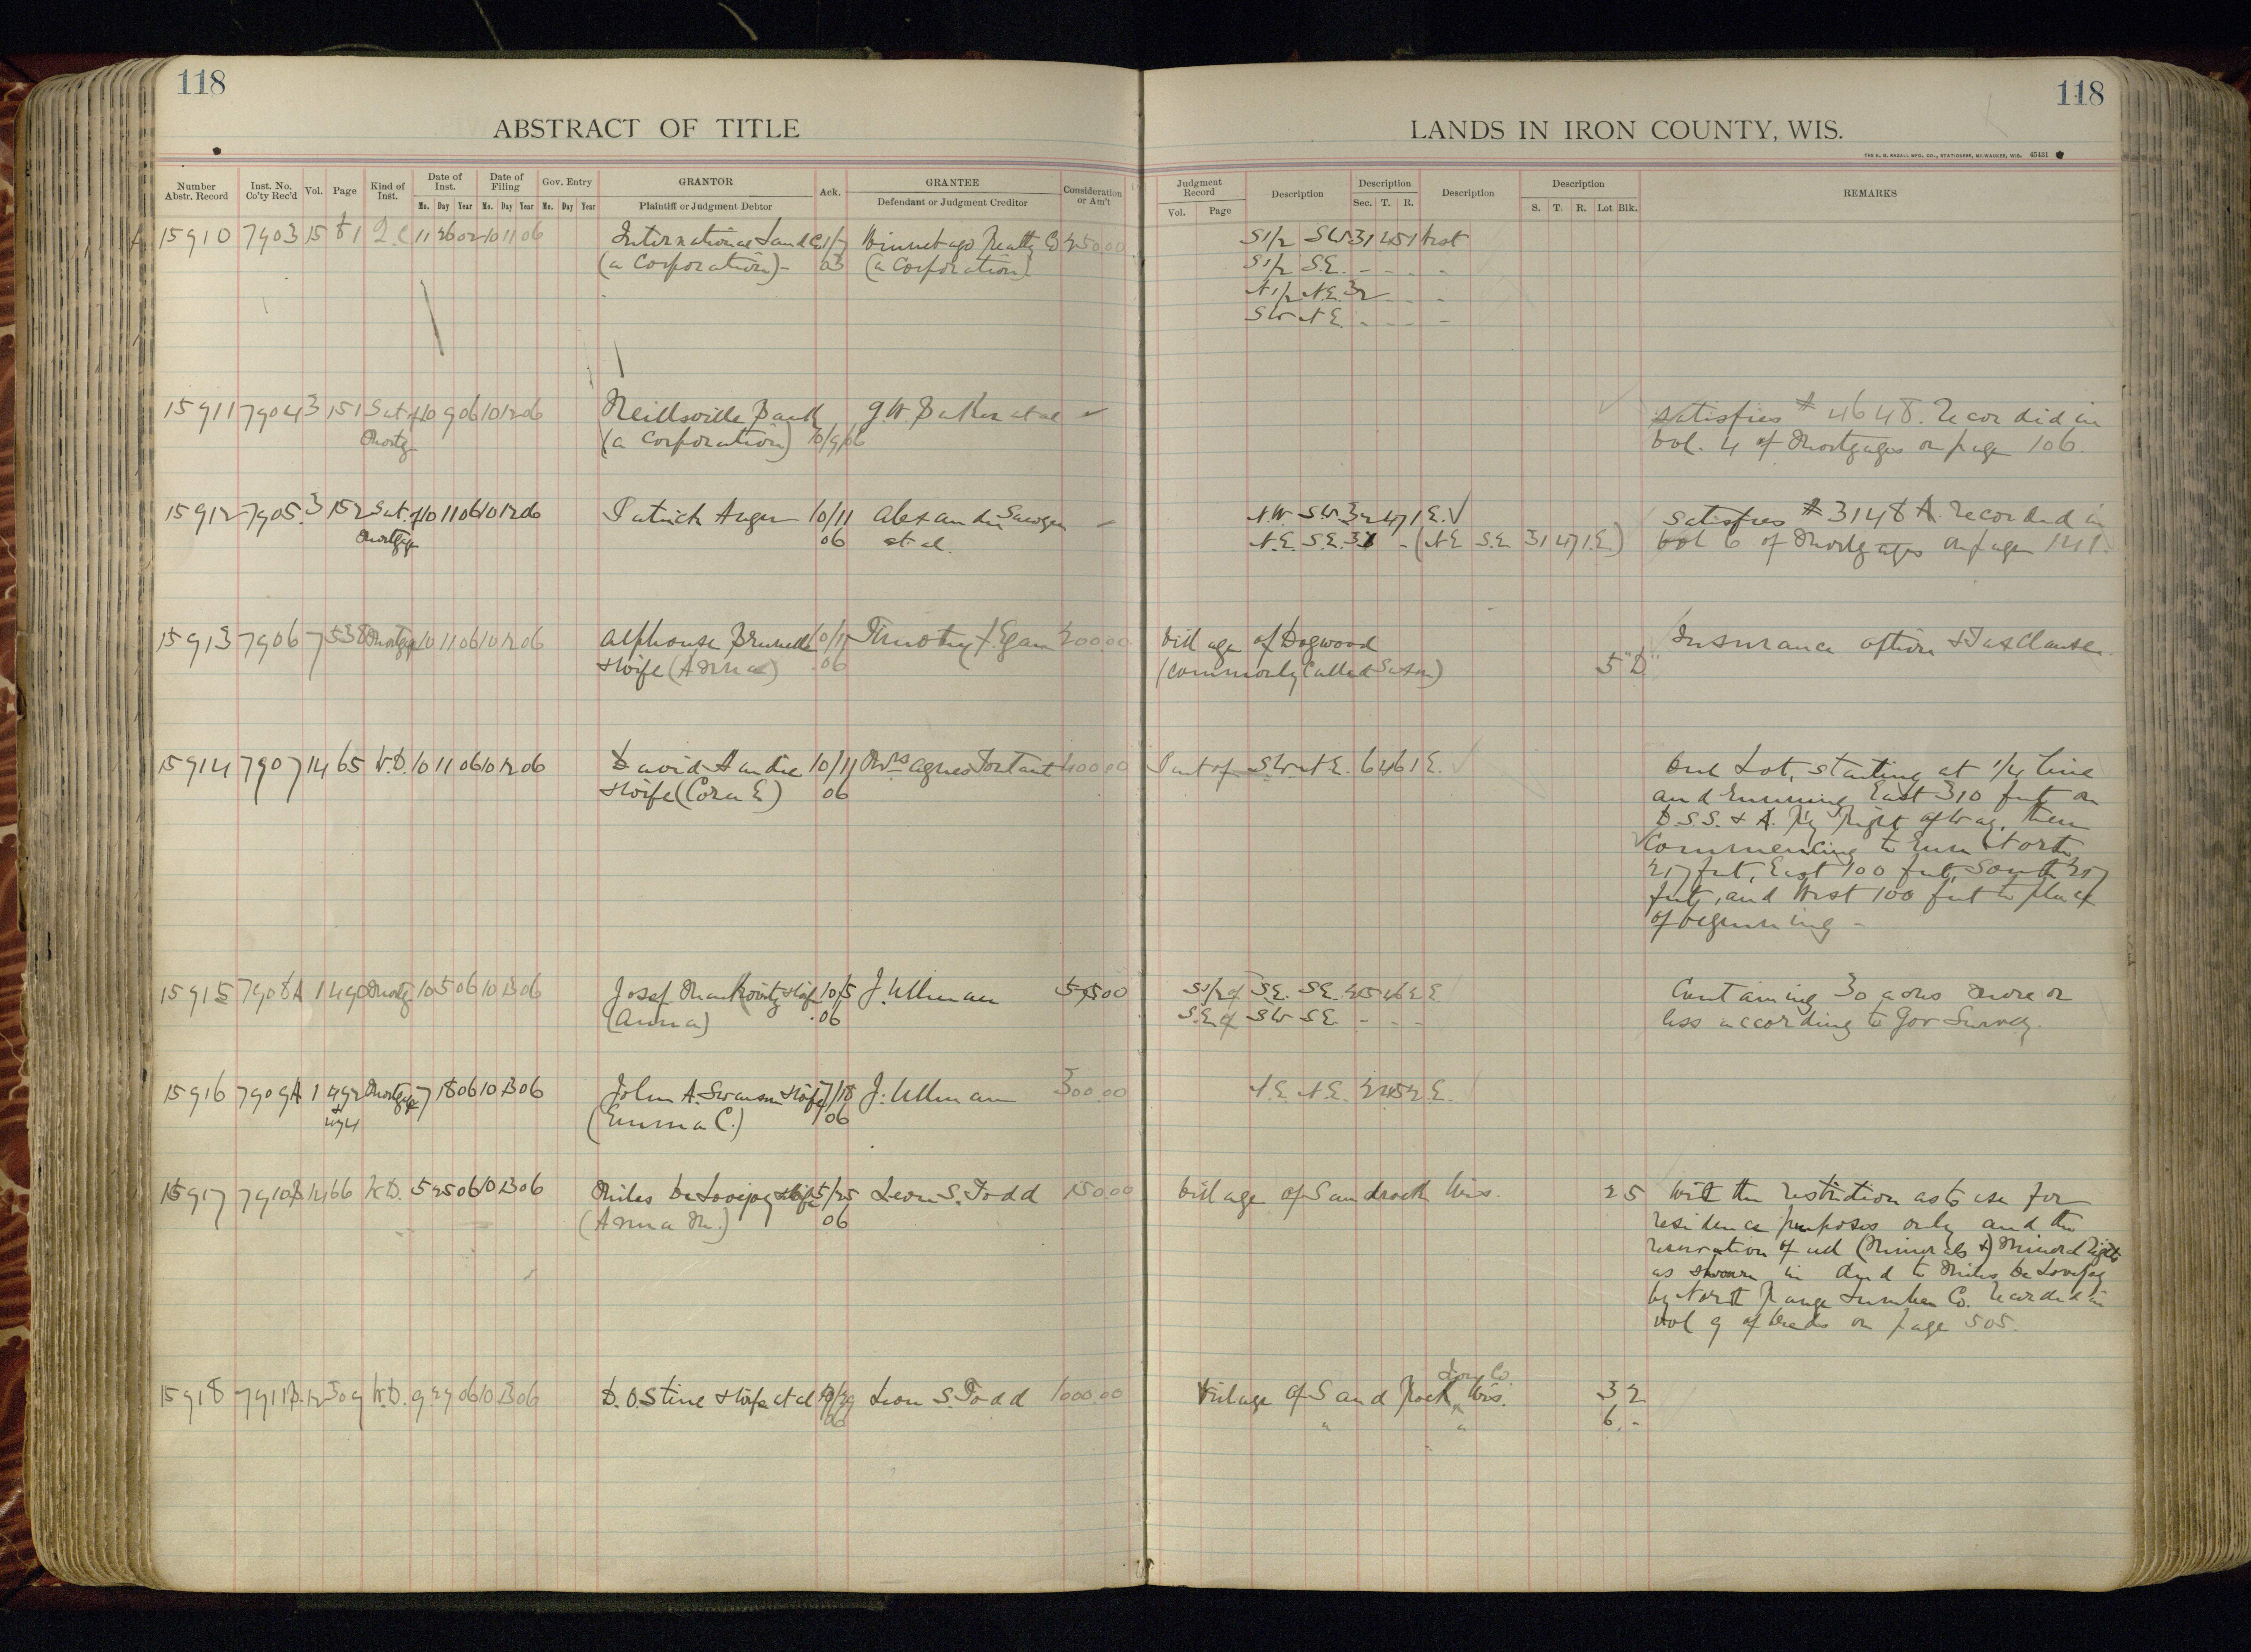 118
118
ABSTRACT OF TITLE
LANDS IN IRON COUNTY, WIS.
THE H. G. RAZALL MFG. CO., STATIONERS, MILWAUKEE, WIS. 45431
Number Abstr. Record Inst. No. Co'ty Rec'd Vol. Page Kind of Inst. Date of Inst. Date of Filing Gov. Entry GRANTOR Ack. GRANTEE Consideration or Am't Judgment Record Description Description Description Description REMARKS
Mo. Day Year Mo. Day Year Mo. Day Year Plaintiff or Judgment Debtor Defendant or Judgment Creditor Vol. Page Sec. T. R. S. T. R. Lot Blk.
15910 7903 15 81 Q.C. 11 26 02 10 11 06 International Land Co 1/7 Winnebago Realty Co 250.00 S1/2 SW 31 45 1 West
(a Corporation) 03 (a Corporation) S1/2 S.E. - - - -
N1/2 N.E. 32 - - -
SW N.E. - - - -
15911 7904 3 151 Sat. of 10 9 06 10 12 06 Neillsville Bank G.W. Baker et al Satisfies # 4648. Recorded in
Mortg (a Corporation) 10/9/06 Vol. 4 of Mortgages on page 106.
15912 7905 3 152 Sat. of 10 11 06 10 12 06 Patrick Auger 10/11 Alexander et al N.W. S.W. 32 47 1 E. Satisfies # 3148 A. Recorded in
Mortgage 06 N.E. S.E. 31 - (N.E S.E 31 47 1.E.) Vol 6 of Mortgages on page 141.
15913 7906 7 538 Mortgage 10 11 06 10 12 06 Alphonse Brunelle 10/11 Timothy J. Egan 200.00 Village of Dogwood Insurance option & Tax Clauses.
& Wife (Anna) 06 (commonly called Saxon) 5 "D"
15914 7907 14 65 W.D. 10 11 06 10 12 06 David & Wife (Cora E) 10/11 06 Mrs Agnes 400.00 Part of S.W. N.E. 6 46 1 E. One Lot, starting at 1/4 line
and running East 310 feet on
D.S.S. & A. R'y Right of Way, then
Commencing to run North
217 feet, East 100 feet, South 217
feet, and West 100 feet to place
of beginning -
15915 7908 A 1 490 Mortg 10 5 06 10 13 06 Josef & Wife 10/5 J. Ullman S1/2 of S.E. S.E. 4 2 E. Containing 30 acres more or
(Anna) 06 S.E. of SW S.E. - - - less according to Gov Survey.
15916 7909 A 1 492 Mortgage 7 18 06 10 13 06 John A. Swanson & Wife 7/18 J. Ullman 300.00 N.E. N.E. 2 45 2 E.
& 494 (Emma C.) 06
15917 7910 B 14 66 W.D. 5 25 06 10 13 06 Miles De Lovejoy & Wife 5/25 Leon S. Todd 150.00 Village of Sandrock Wis. 2 5 With the restriction as to use for
(Anna M.) 06 residence purposes only and the
reservation of all (Minerals &) Mineral Rights
as shown in deed to Miles De Lovejoy
by North Range Lumber Co. recorded in
Vol 9 of Deeds on page 505.
Iron Co.
15918 7911 B. 12 309 W.D. 9 29 06 10 13 06 D. O. Stine & Wife et al 9/29 Leon S. Todd 1000.00 Village of Sand Rock Wis. 3 2
06 " " 6 -